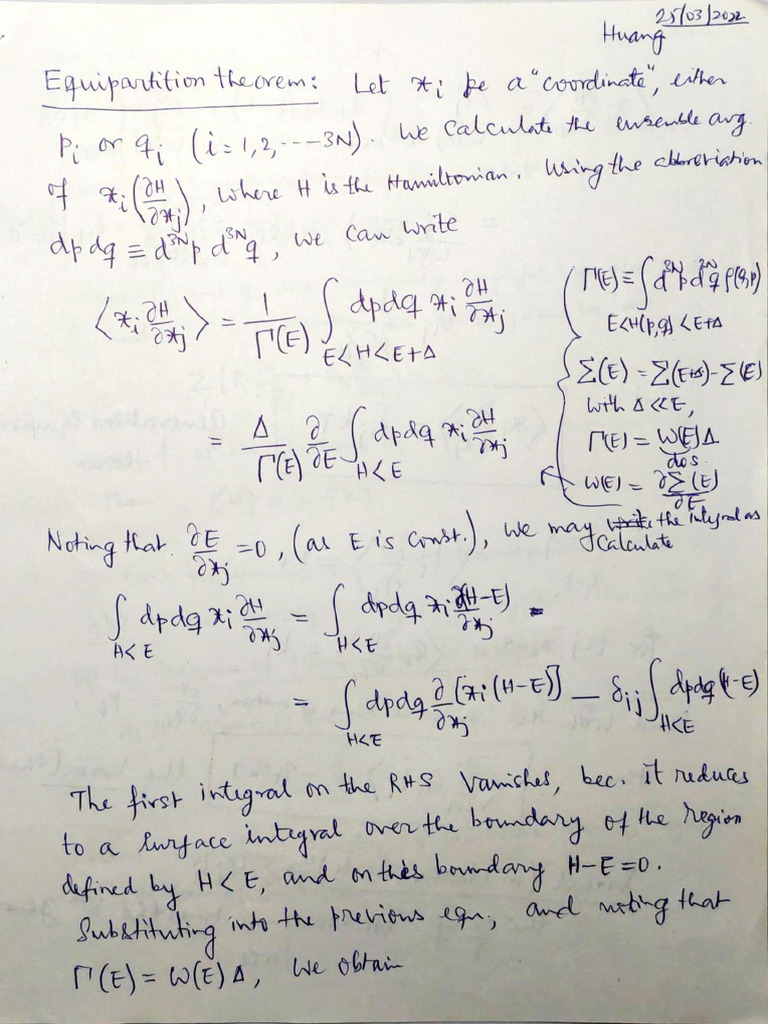 25/03/2022
Huang
Equipartition theorem: Let xi be a "coordinate", either
pi or qi (i=1,2,---3N). We calculate the ensemble avg.
of xi(∂H/∂xj), where H is the Hamiltonian. Using the abbreviation
dpdq ≡ d^3N p d^3N q, we can write
⟨xi ∂H/∂xj⟩ = 1/Γ(E) ∫_{E<H<E+Δ} dpdq xi ∂H/∂xj
= Δ/Γ(E) ∂/∂E ∫_{H<E} dpdq xi ∂H/∂xj
Γ(E) ≡ ∫ d^3N p d^3N q ρ(q,p)
E<H(p,q)<E+Δ
Σ(E) = Σ(E+Δ)-Σ(E)
with Δ<<E,
Γ(E) = W(E)Δ
dos
W(E) = ∂Σ(E)/∂E
Noting that ∂E/∂xj = 0, (as E is const.), we may calculate the integral as
∫_{H<E} dpdq xi ∂H/∂xj = ∫_{H<E} dpdq xi ∂(H-E)/∂xj
= ∫_{H<E} dpdq ∂/∂xj [xi(H-E)] - δij ∫_{H<E} dpdq (H-E)
The first integral on the RHS vanishes, bec. it reduces
to a surface integral over the boundary of the region
defined by H<E, and on this boundary H-E=0.
Substituting into the previous eqn., and noting that
Γ(E) = W(E)Δ, we obtain